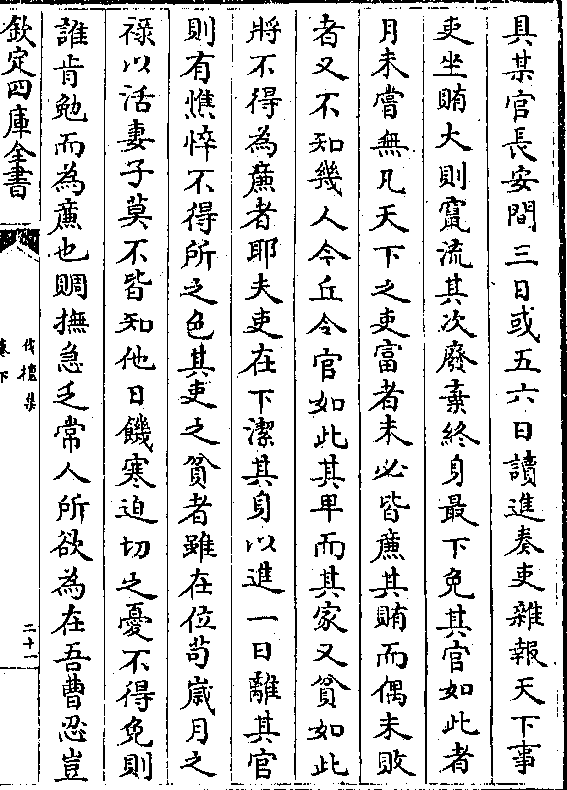 具某官長安間三日或五六日讀進奏吏雜報天下事
吏坐賄大則竄流其次廢棄終身最下免其官如此者
月未嘗無凡天下之吏富者未必皆廉其賄而偶未敗
者又不知幾人今丘令官如此其卑而其家又貧如此
將不得為廉者耶夫吏在下潔其身以進一日離其官
則有憔悴不得所之色其吏之貧者雖在位苟歳月之
祿以活妻子莫不皆知他日饑寒迫切之憂不得免則
誰肯勉而為廉也賙撫急乏常人所欲為在吾曹忍豈
欽定四庫全書
伐檀集
卷下
二十一